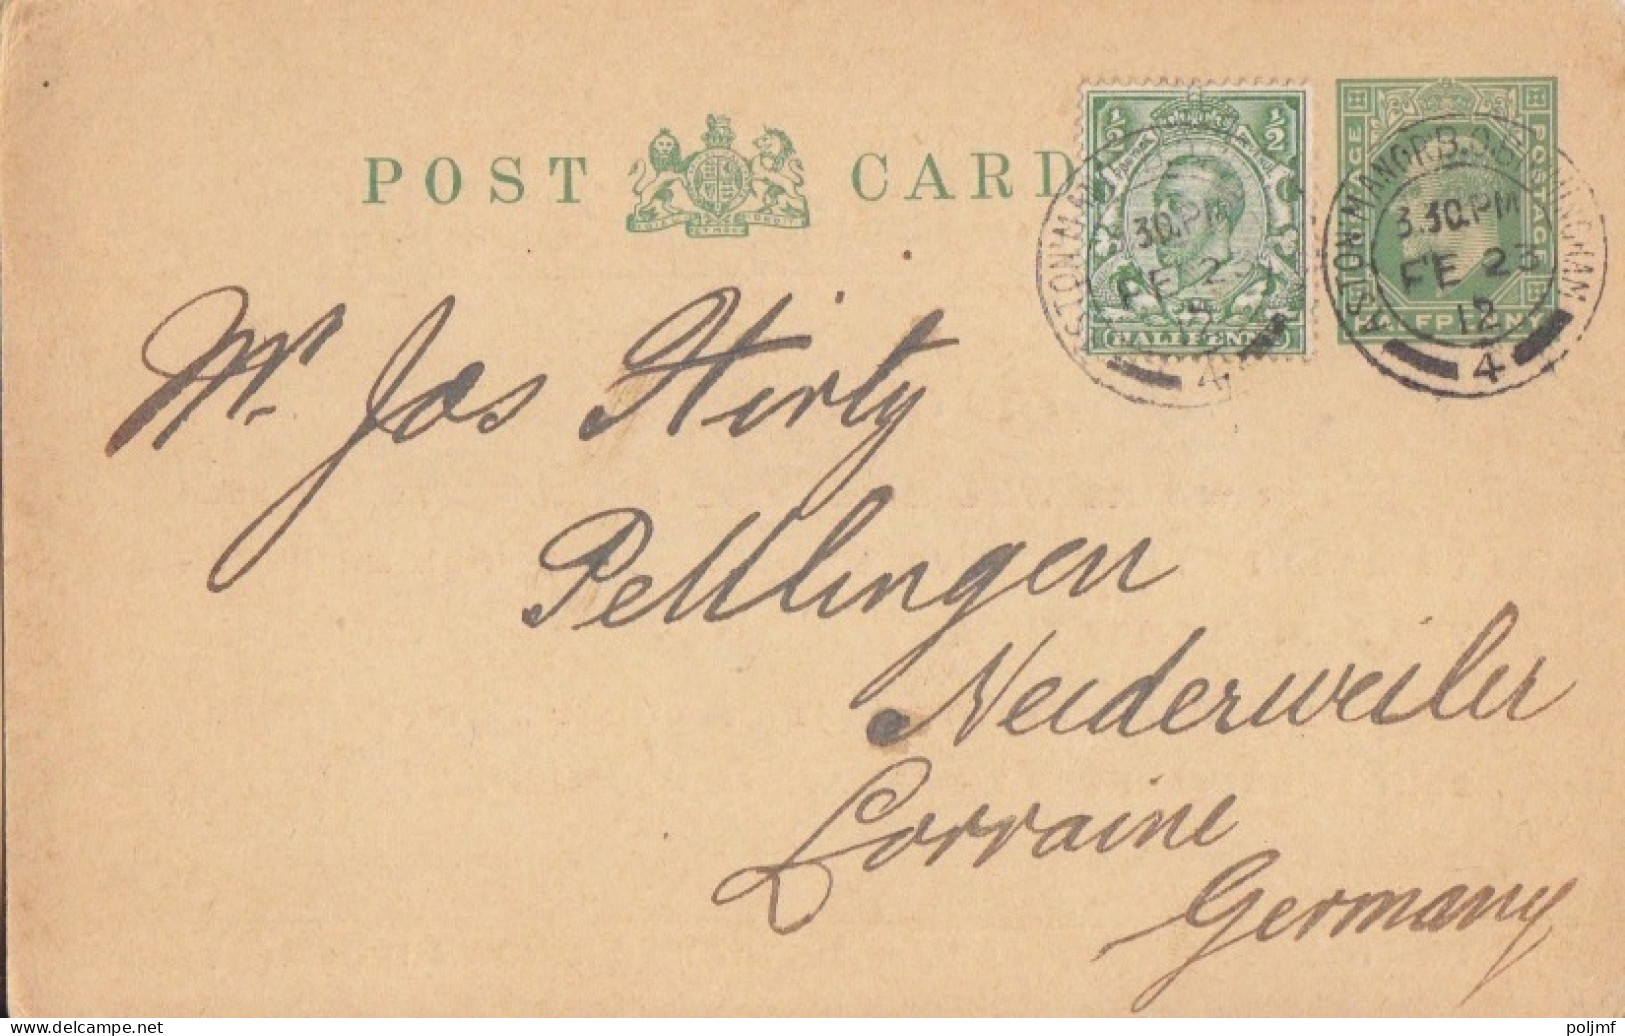 POST CARD
½ ½
HALFPENNY
POSTAGE
HALFPENNY
ASTON MANOR B.O. BIRMINGHAM
3.30.PM
FE 23
12
4
30.PM
FE 2
12
4
Mr. Jos Hirly
Pettlingen
Neiderweiler
Lorraine
Germany
delcampe.net
poljmf